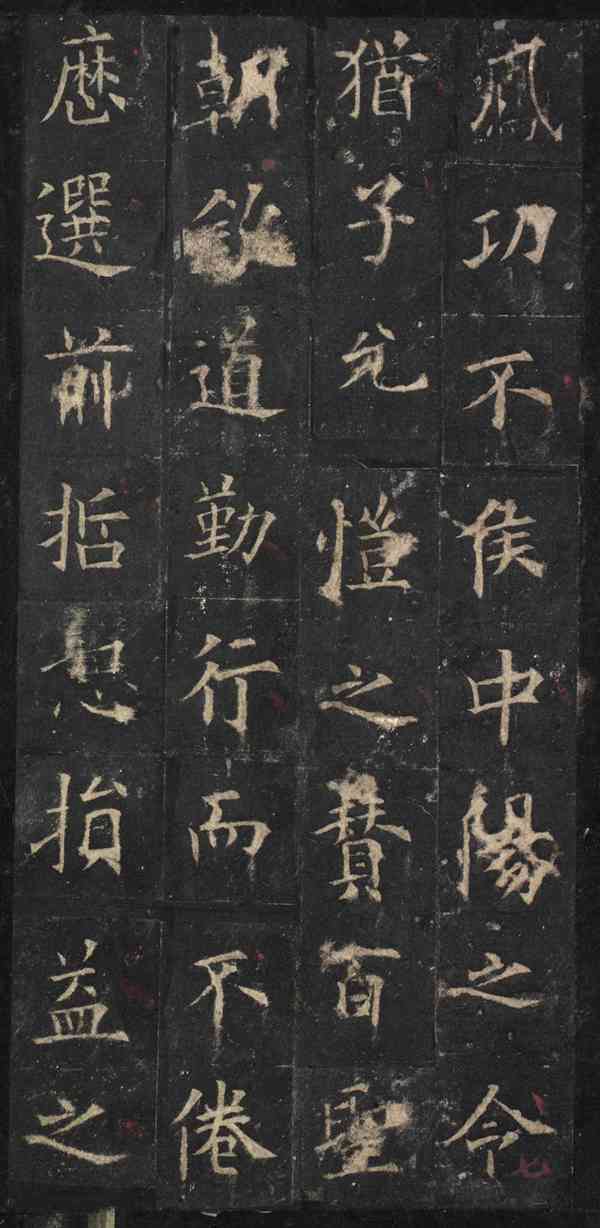 功不俟中陽之令
猶子允愷之贊百聖
朝道勤行而不倦
歷選前哲損益之